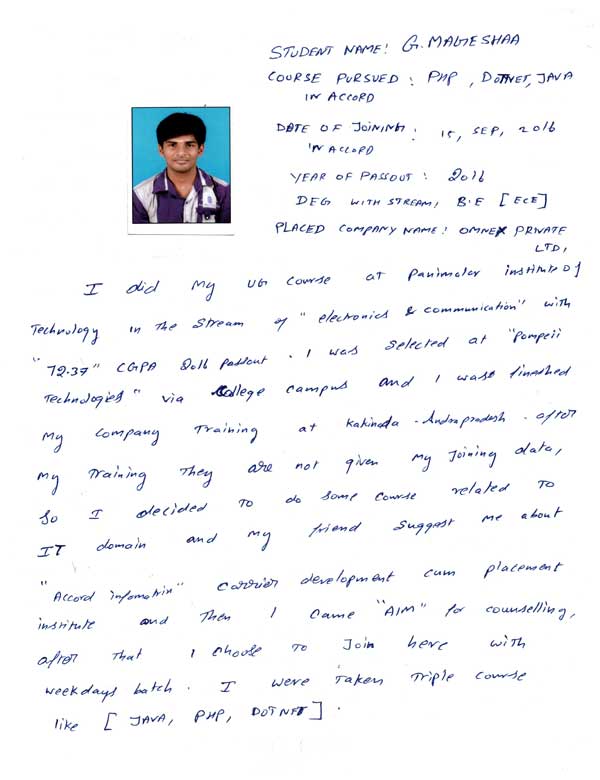 STUDENT NAME: G. MAGESHAA
COURSE PURSUED: PHP, DOTNET, JAVA
IN ACCORD
DATE OF JOINING: 15, SEP, 2016
IN ACCORD
YEAR OF PASSOUT: 2016
DEG WITH STREAM, B.E [ECE]
PLACED COMPANY NAME: OMNEX PRIVATE
LTD,
I did my UG course at Panimalar institute of
Technology in the stream of "electronics & communication" with
"72.37" CGPA 2016 passout. I was selected at "Pompeii
Technologies" via college campus and I wase finished
my company Training at Kakinada - Andrapradesh. after
my training they are not given my joining data,
So I decided to do some course related to
IT domain and my friend suggest me about
"Accord infomatrix" carrier development cum placement
institute and then I came "AIM" for counselling,
after that I choose to Join here with
weekdays batch. I were taken triple course
like [JAVA, PHP, DOTNET].